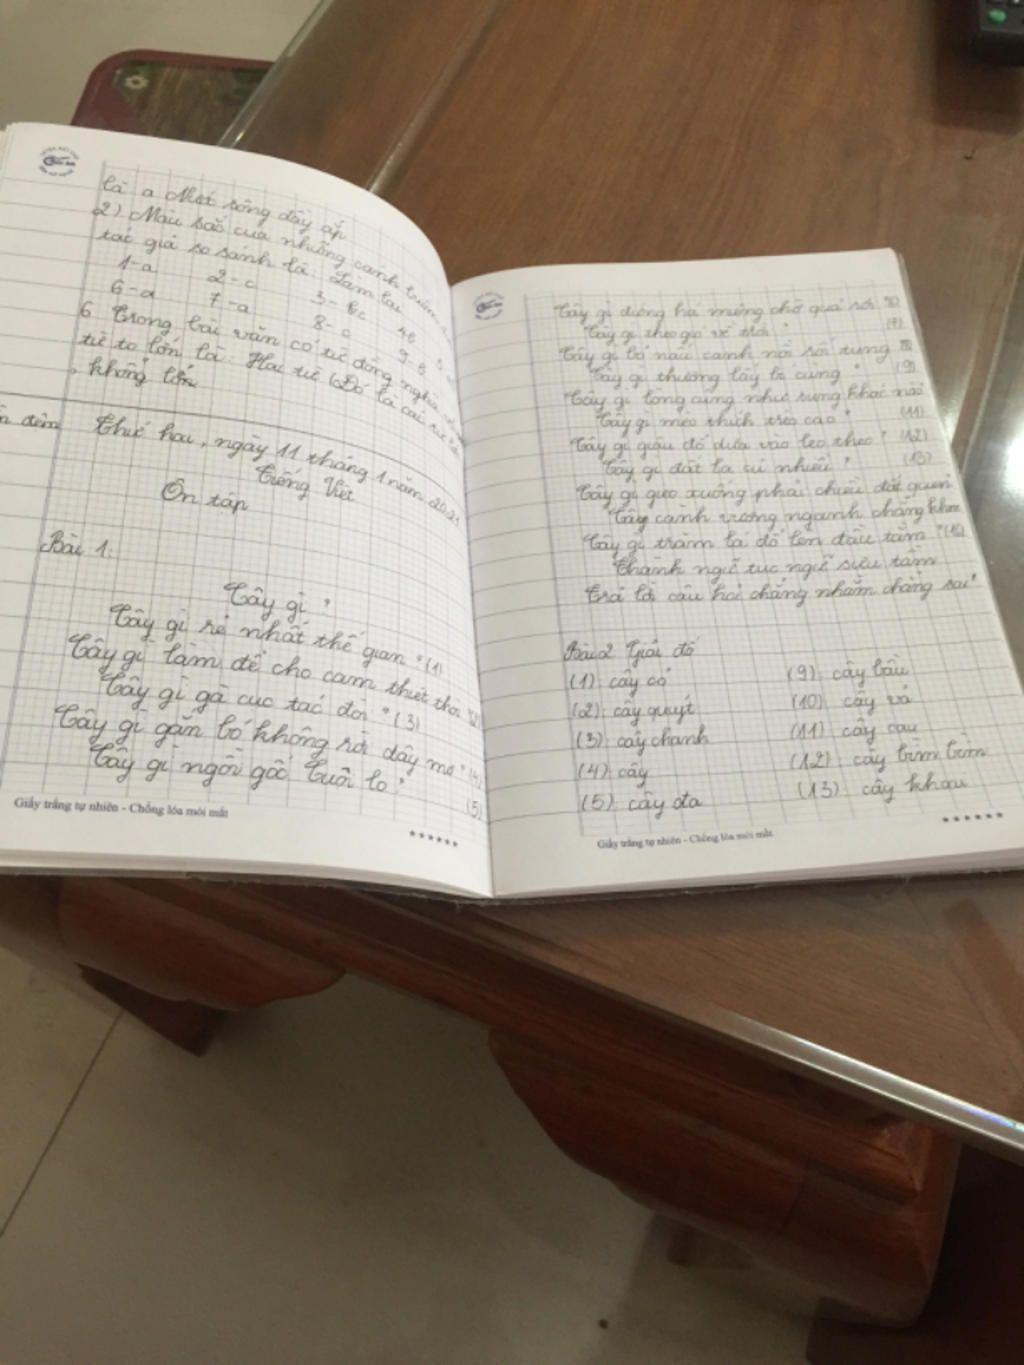 là a Mắt sông đầy ắp
2) Màu sắc của những cánh
tác giả so sánh là: Lam lau
1-a 2-c 3-bc 4b 5
6-a 7-a 8-c 9-b
6 Trong bài văn có từ đồng nghĩa
từ to lớn là: Hai từ (Đó là các từ
, khổng lồ)
Thứ hai, ngày 11 tháng 1 năm 2021
Tiếng Việt
Ôn tập
Bài 1:
Cây gì?
Cây gì rẻ nhất thế gian? (1)
Cây gì làm để cho cam thiệt thòi (2)
Cây gì gà cục tác đòi? (3)
Cây gì gắn bó không rời dây mơ? (4)
Cây gì ngồi gốc cuội lo?
(5)
Giấy trắng tự nhiên - Chống lóa mỏi mắt
Cây gì đứng há miệng chờ quả rơi
Cây gì theo gió về trời?
Cây gì bỏ nấu canh nồi sôi sung
Cây gì thương lấy bí cùng? (9)
Cây gì lòng cũng như sung khác nào
Cây gì mèo thích trèo cao? (11)
Cây gì giậu đổ dựa vào leo theo? (12)
Cây gì đắt la sư nhiều? (13)
Cây gì gieo xuống phải chiều đất quen
Cây cành vương ngang chẳng
Cây gì trăm lá đổ lên đầu tằm?
Thành ngữ tục ngữ sưu tầm
Trả lời câu hỏi chẳng nhầm chẳng sai!
Bài 2 Giải đố
(1): cây cỏ (9): cây bầu
(2): cây quýt (10): cây vả
(3): cây chanh (11): cây cau
(4): cây (12): cây bìm bìm
(5): cây đa (13): cây khoai
Giấy trắng tự nhiên - Chống lóa mỏi mắt